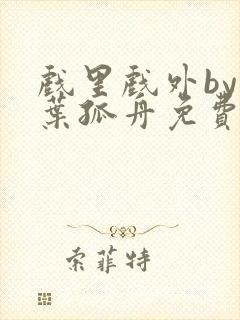 戲里戲外by一
葉孤舟免費
索菲特